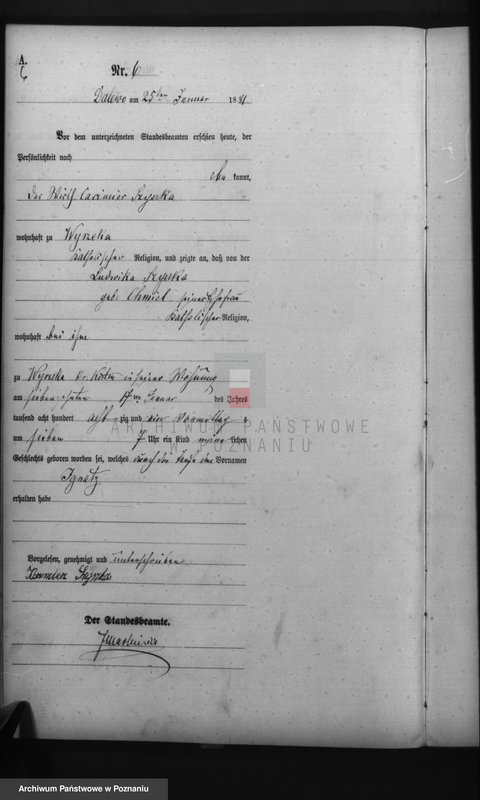 A.
6
Nr. 6
Dalewo am 25ten Januar 1881
Vor dem unterzeichneten Standesbeamten erschien heute, der
Persönlichkeit nach
be kannt,
Der Wirth Casimier
wohnhaft zu Wyrzeka
katholischer Religion, und zeigte an, daß von der
Ludwika
geb. Chmiel seiner Ehefrau
katholischer Religion,
wohnhaft bei ihm
zu Wyrzeka in seiner Wohnung
am siebenzehnten 17ten Januar des Jahres
tausend acht hundert achtzig und ein Vormittag s
um sieben 7 Uhr ein Kind männlichen
Geschlechts geboren worden sei, welches durch die Taufe den Vornamen
Ignatz
erhalten habe
Vorgelesen, genehmigt und unterschrieben
Der Standesbeamte.
ARCHIWUM PAŃSTWOWE
W POZNANIU
Archiwum Państwowe w Poznaniu